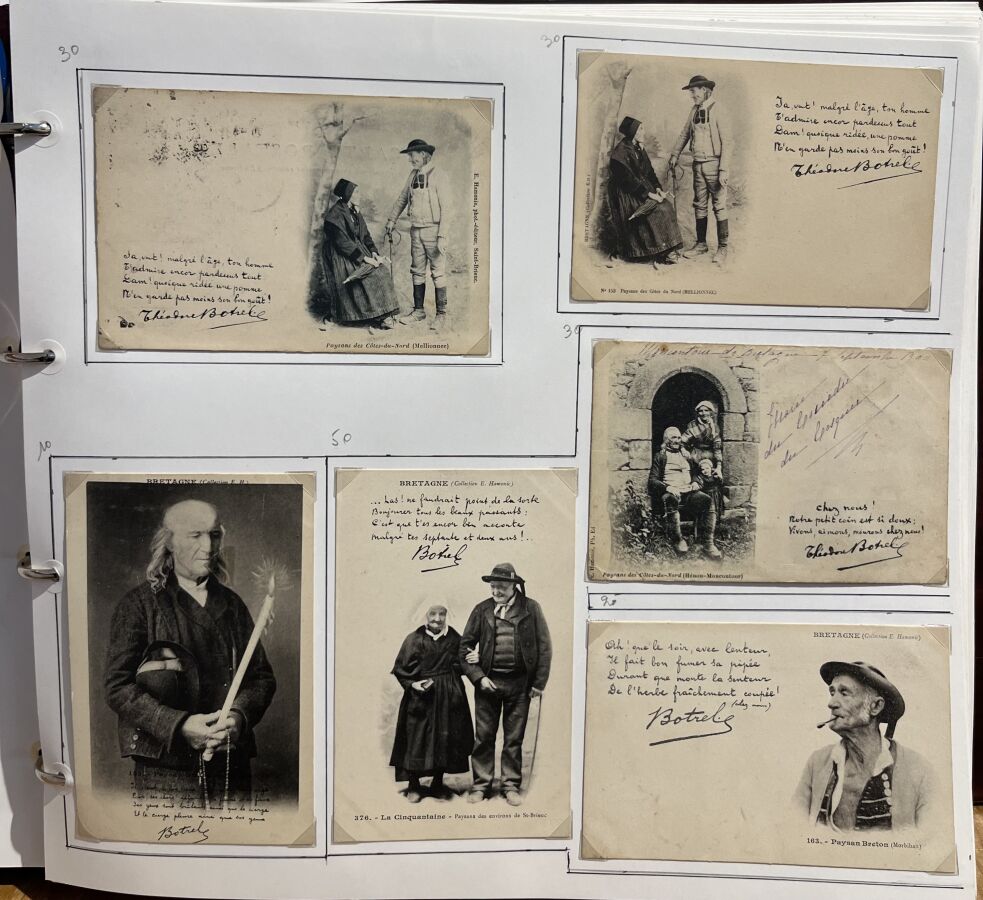 30
Ia, vat! malgré l'âge, ton homme
T'admire encor pardessus tout
Dam! quoique ridée, une pomme
N'en garde pas moins son bon goût!
Théodore Botrel
E. Hamonic, phot.-éditeur, Saint-Brieuc.
Paysans des Côtes-du-Nord (Mellionnec)
30
Ia, vat! malgré l'âge, ton homme
T'admire encor pardessus tout
Dam! quoique ridée, une pomme
N'en garde pas moins son bon goût!
Théodore Botrel
BRETAGNE (Collection E.H.)
N° 153 Paysans des Côtes du Nord (MELLIONNEC)
30
Moncontour-de-Bretagne
chez nous!
Notre petit coin est si doux;
Vivons, aimons, mourons chez nous!
Théodore Botrel
E. Hamonic, Ph. Ed
Paysans des Côtes-du-Nord (Hénon-Moncontour)
10
BRETAGNE (Collection E. H.)
des yeux
Et le cierge pleure ainsi que ses yeux
Botrel
50
BRETAGNE (Collection E. Hamonic)
... Las! ne faudrait point de la sorte
Bonjourer tous les beaux passants;
C'est que t'es encor ben accorte
malgré tes septante et deux ans!...
Botrel
376. - La Cinquantaine - Paysans des environs de St-Brieuc
BRETAGNE (Collection E. Hamonic)
Oh! que le soir, avec lenteur,
Il fait bon fumer sa pipée
Durant que monte la senteur
De l'herbe fraîchement coupée!
(chez nous)
Botrel
163. - Paysan Breton (Morbihan)